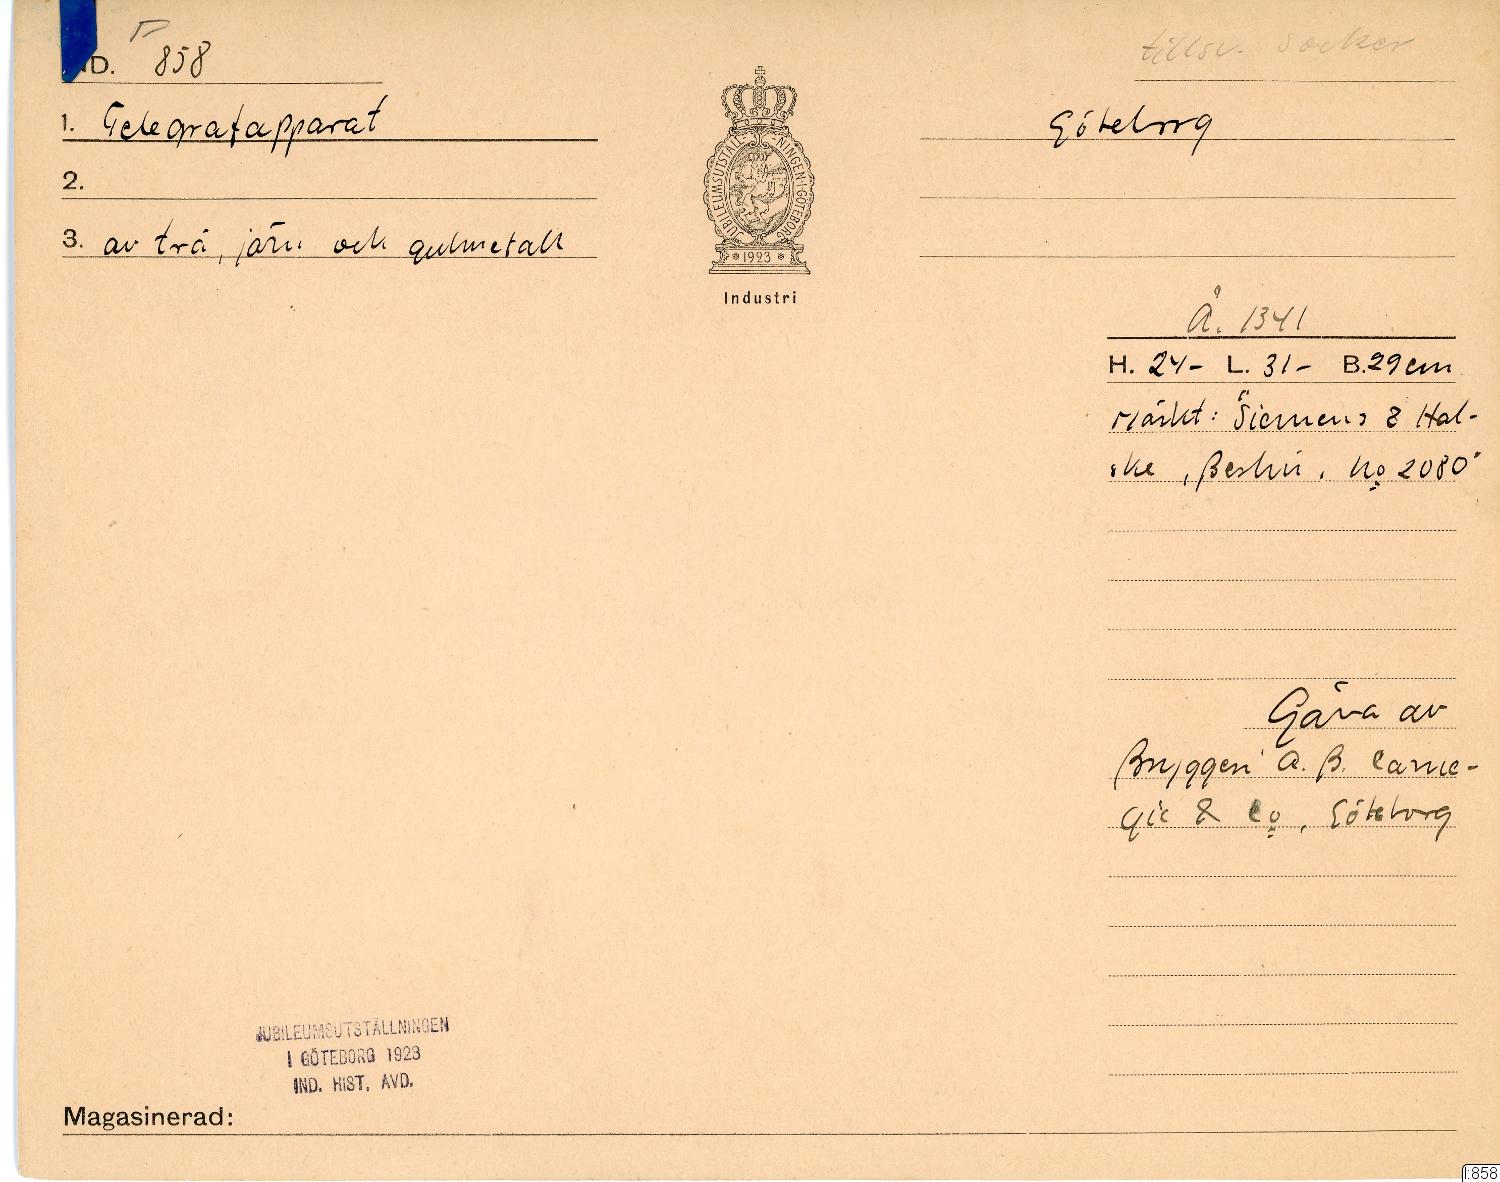 IND. 858
tillsv. socker
1. Telegrafapparat
Göteborg
2.
3. av trä, järn och gulmetall
JUBILEUMSUTSTÄLLNINGEN I GÖTEBORG
1923
Industri
Å. 1341
H. 24- L. 31- B. 29 cm
Märkt: "Siemens & Hal-
ske, Berlin, No 2080"
Gåva av
Bryggeri A. B. Carne-
gie & Co, Göteborg
JUBILEUMSUTSTÄLLNINGEN
I GÖTEBORG 1923
IND. HIST. AVD.
Magasinerad:
I:858